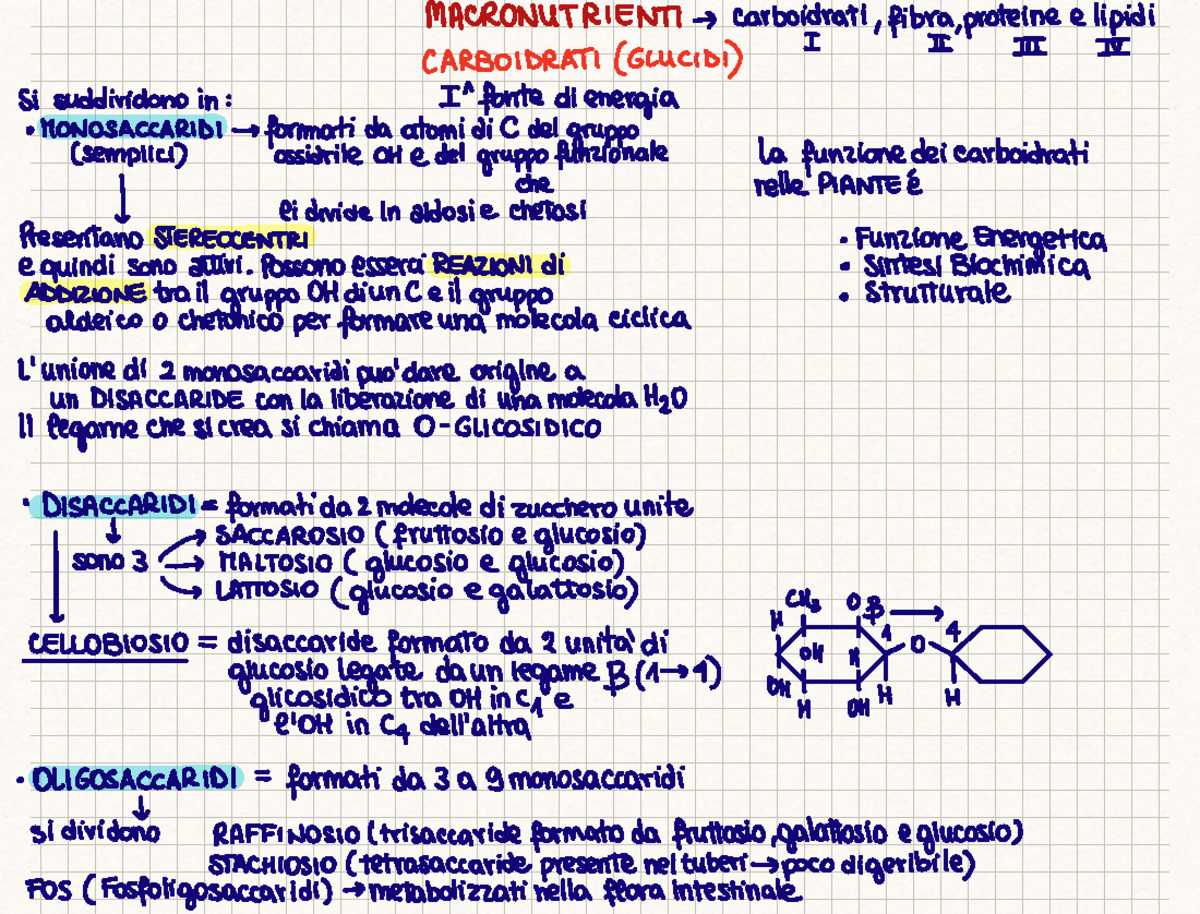 MACRONUTRIENTI → carboidrati, fibra, proteine e lipidi
I II III IV
CARBOIDRATI (GLUCIDI)
I^ fonte di energia
Si suddividono in:
• MONOSACCARIDI → formati da atomi di C del gruppo
(semplici) ossidrile OH e del gruppo funzionale
che
li divide in aldosi e chetosi
↓
Presentano STEREOCENTRI
e quindi sono attivi. Possono esserci REAZIONI di
ADDIZIONE tra il gruppo OH di un C e il gruppo
aldeico o chetonico per formare una molecola ciclica
la funzione dei carboidrati
nelle PIANTE é
• Funzione Energetica
• Sintesi Biochimica
• Strutturale
L'unione di 2 monosaccaridi puo' dare origine a
un DISACCARIDE con la liberazione di una molecola H₂O
Il legame che si crea si chiama O-GLICOSIDICO
• DISACCARIDI = formati da 2 molecole di zucchero unite
↓ → SACCAROSIO (fruttosio e glucosio)
sono 3 → MALTOSIO (glucosio e glucosio)
→ LATTOSIO (glucosio e galattosio)
CELLOBIOSIO = disaccaride formato da 2 unita' di
glucosio legate da un legame β (1→4)
glicosidico tra OH in C₁ e
l'OH in C₄ dell'altra
CH₃ O β →
H 1 O 4
OH H
OH H H
H OH
• OLIGOSACCARIDI = formati da 3 a 9 monosaccaridi
↓
si dividono RAFFINOSIO (trisaccaride formato da fruttosio, galattosio e glucosio)
STACHIOSIO (tetrasaccaride presente nei tuberi → poco digeribile)
FOS (Fosfoligosaccaridi) → metabolizzati nella flora intestinale